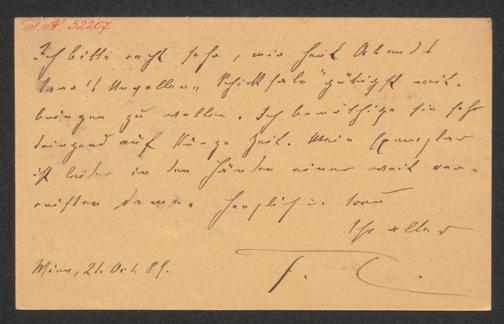 I. N. 52207
Ich bitte recht sehr, mir heut Abends
Novellen „Schicksale" gütigst mit-
bringen zu wollen. Ich benöthige sie sehr
dringend auf kurze Zeit. Mein Exemplar
ist leider in den Händen einer weit ver-
reisten Dame. Herzlichst
Ihr alter
Wien, 21. Oct. 89.
F. C.